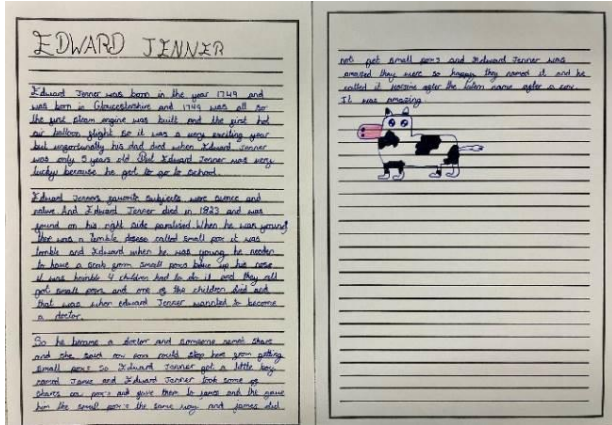 EDWARD JENNER
Edward Jenner was born in the year 1749 and
was born in Gloucestershire and 1749 was all so
the year first steam engine was built and the first hot
air balloon flight so it was a very exciting year
but unfortunatly his dad died when Edward Jenner
was only 5 years old But Edward Jenner was very
lucky because he got to go to school.
Edward Jenners favourite subjects were science and
nature And Edward Jenner died in 1823 and was
found on his right side paralised. When he was young
ther was a terrible desese called small pox it was
terrible and Edward when he was young he
to have a scab from small poxs up his nose
it was horrible 4 children had to do it and they all
got small poxs and one of the children died and
that was when edward Jenner wannted to become
a doctor.
So he became a doctor and someone named
and she said cow poxs could stop here from getting
small poxs so Edward Jenner got a little boy
named James and Edward Jenner took some of
cow poxs and gave them to james and the gave
him the small poxs the same way and james did
not get small poxs and Edward Jenner was
amazed they were so happy they named it and he
called it vaccine after the latin name after a cow.
It was amazing